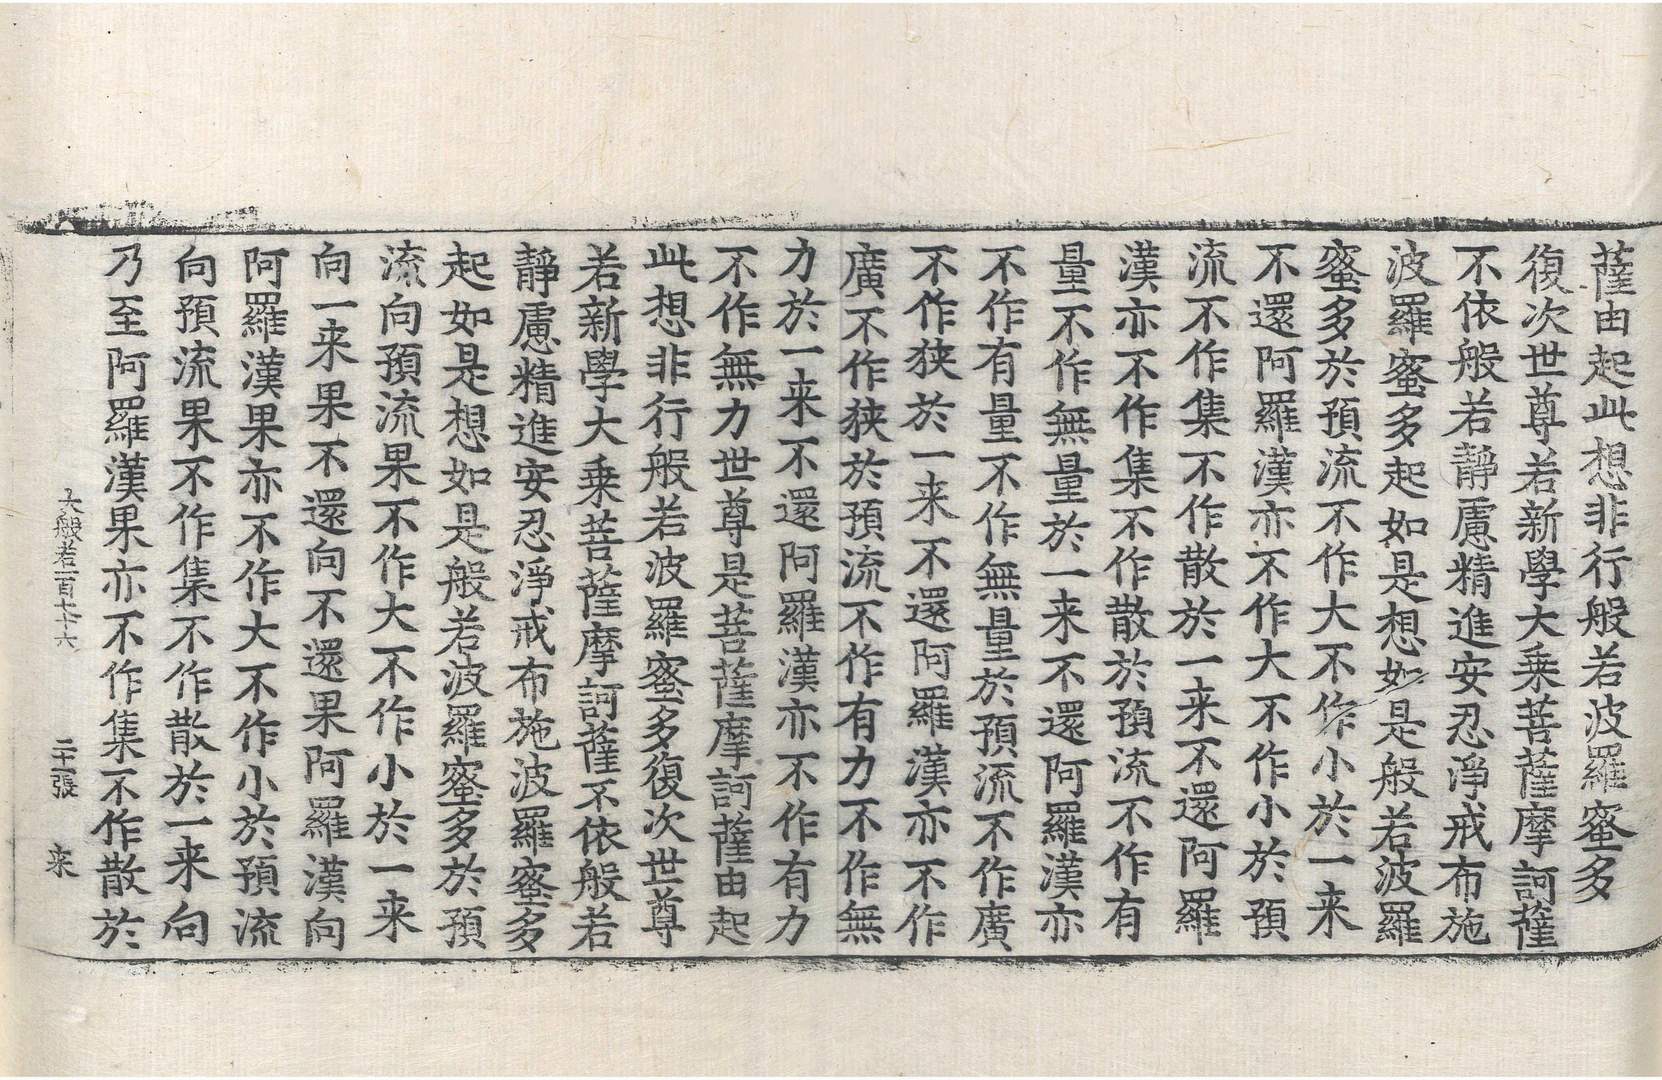 薩由起此想非行般若波羅蜜多
復次世尊若新學大乘菩薩摩訶薩
不依般若靜慮精進安忍淨戒布施
波羅蜜多起如是想如是般若波羅
蜜多於預流不作大不作小於一来
不還阿羅漢亦不作大不作小於預
流不作集不作散於一来不還阿羅
漢亦不作集不作散於預流不作有
量不作無量於一来不還阿羅漢亦
不作有量不作無量於預流不作廣
不作狹於一来不還阿羅漢亦不作
廣不作狹於預流不作有力不作無
力於一来不還阿羅漢亦不作有力
不作無力世尊是菩薩摩訶薩由起
此想非行般若波羅蜜多復次世尊
若新學大乘菩薩摩訶薩不依般若
靜慮精進安忍淨戒布施波羅蜜多
起如是想如是般若波羅蜜多於預
流向預流果不作大不作小於一来
向一来果不還向不還果阿羅漢向
阿羅漢果亦不作大不作小於預流
向預流果不作集不作散於一来向
乃至阿羅漢果亦不作集不作散於
大般若一百七十六 二十一張 来